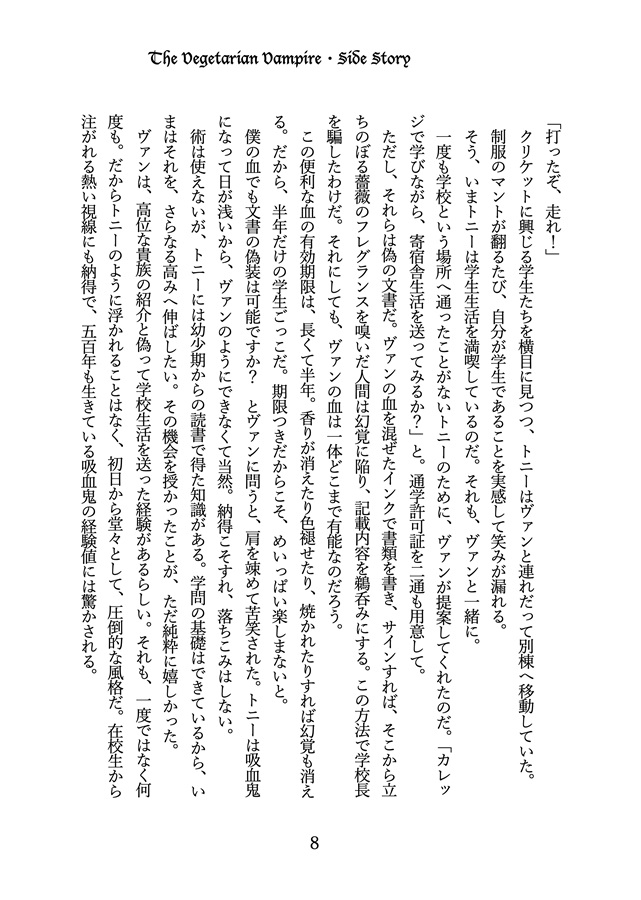 The Vegetarian Vampire・Side Story
「打ったぞ、走れ！」
クリケットに興じる学生たちを横目に見つつ、トニーはヴァンと連れだって別棟へ移動していた。
制服のマントが翻るたび、自分が学生であることを実感して笑みが漏れる。
そう、いまトニーは学生生活を満喫しているのだ。それも、ヴァンと一緒に。
一度も学校という場所へ通ったことがないトニーのために、ヴァンが提案してくれたのだ。「カレッ
ジで学びながら、寄宿舎生活を送ってみるか？」と。通学許可証を二通も用意して。
ただし、それらは偽の文書だ。ヴァンの血を混ぜたインクで書類を書き、サインすれば、そこから立
ちのぼる薔薇のフレグランスを嗅いだ人間は幻覚に陥り、記載内容を鵜呑みにする。この方法で学校長
を騙したわけだ。それにしても、ヴァンの血は一体どこまで有能なのだろう。
この便利な血の有効期限は、長くて半年。香りが消えたり色褪せたり、焼かれたりすれば幻覚も消え
る。だから、半年だけの学生ごっこだ。期限つきだからこそ、めいっぱい楽しまないと。
僕の血でも文書の偽装は可能ですか？　とヴァンに問うと、肩を竦めて苦笑された。トニーは吸血鬼
になって日が浅いから、ヴァンのようにできなくて当然。納得こそすれ、落ちこみはしない。
術は使えないが、トニーには幼少期からの読書で得た知識がある。学問の基礎はできているから、い
まはそれを、さらなる高みへ伸ばしたい。その機会を授かったことが、ただ純粋に嬉しかった。
ヴァンは、高位な貴族の紹介と偽って学校生活を送った経験があるらしい。それも、一度ではなく何
度も。だからトニーのように浮かれることはなく、初日から堂々として、圧倒的な風格だ。在校生から
注がれる熱い視線にも納得で、五百年も生きている吸血鬼の経験値には驚かされる。
8